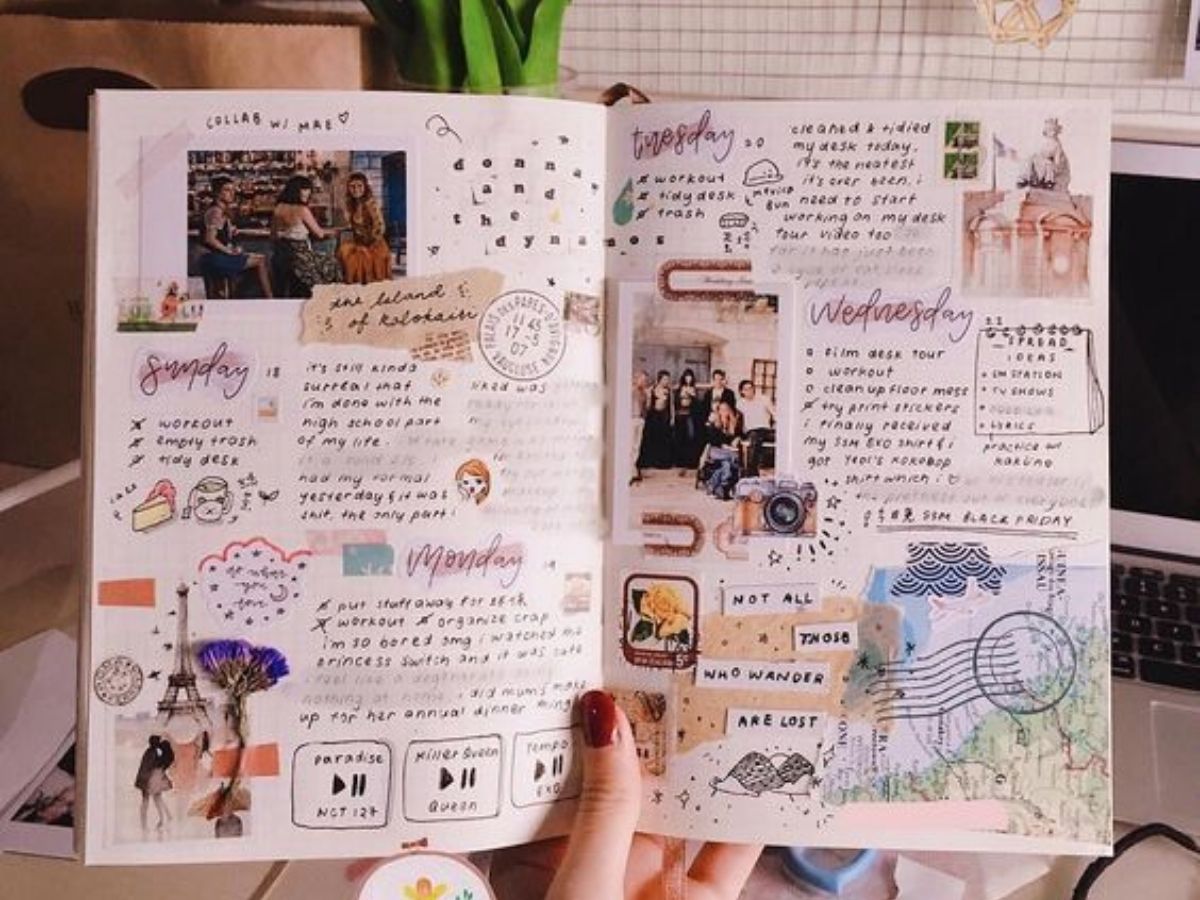 COLLAB W/ MAE
donna
and
the
dynamos
the Island
of Kalokairi
PALAIS DES PAPES-D'AVIGNON
11 45
17 -5
07
VAUCLUSE
Sunday 18
workout
empty trash
tidy desk
it's still kinda
surreal that
i'm done with the
high school part
of my life.
had my formal
yesterday & it was
shit. the only part i
liked was
do what
you
love
Monday 19
put stuff away for
workout organize crap
i'm so bored omg i watched the
princess switch and it was cute
i feel like a degenerate
nothing at home. i did mum's make
up for her annual dinner thing
paradise
NCT 127
Killer Queen
Queen
Tempo
EXO
tuesday 20
workout
tidy desk
trash
mexico
bun
cleaned & tidied
my desk today.
it's the neatest
it's ever been. i
need to start
working on my desk
tour video too
for it has just been
Wednesday 21
film desk tour
workout
clean up floor mess
try print stickers
i finally received
my SSM EXO shirt & i
got Yeol's kokobop
shirt which i
the prettiest out of everyone
SSM BLACK FRIDAY
SPREAD
IDEAS
TV SHOWS
LYRICS
practice w/
NOT ALL
THOSE
WHO WANDER
ARE LOST